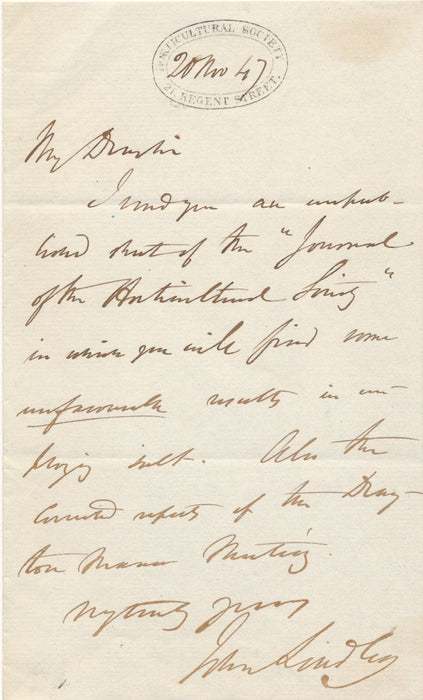 HORTICULTURAL SOCIETY
20 Nov 47
21, REGENT STREET.
My Dear Sir
I send you an unpub-
lished sheet of the "Journal
of the Horticultural Society"
in which you will find some
unfavourable results in em-
ploying salt. Also the
corrected reports of the Dray-
ton Manor Meeting.
Very truly yours
John Lindley